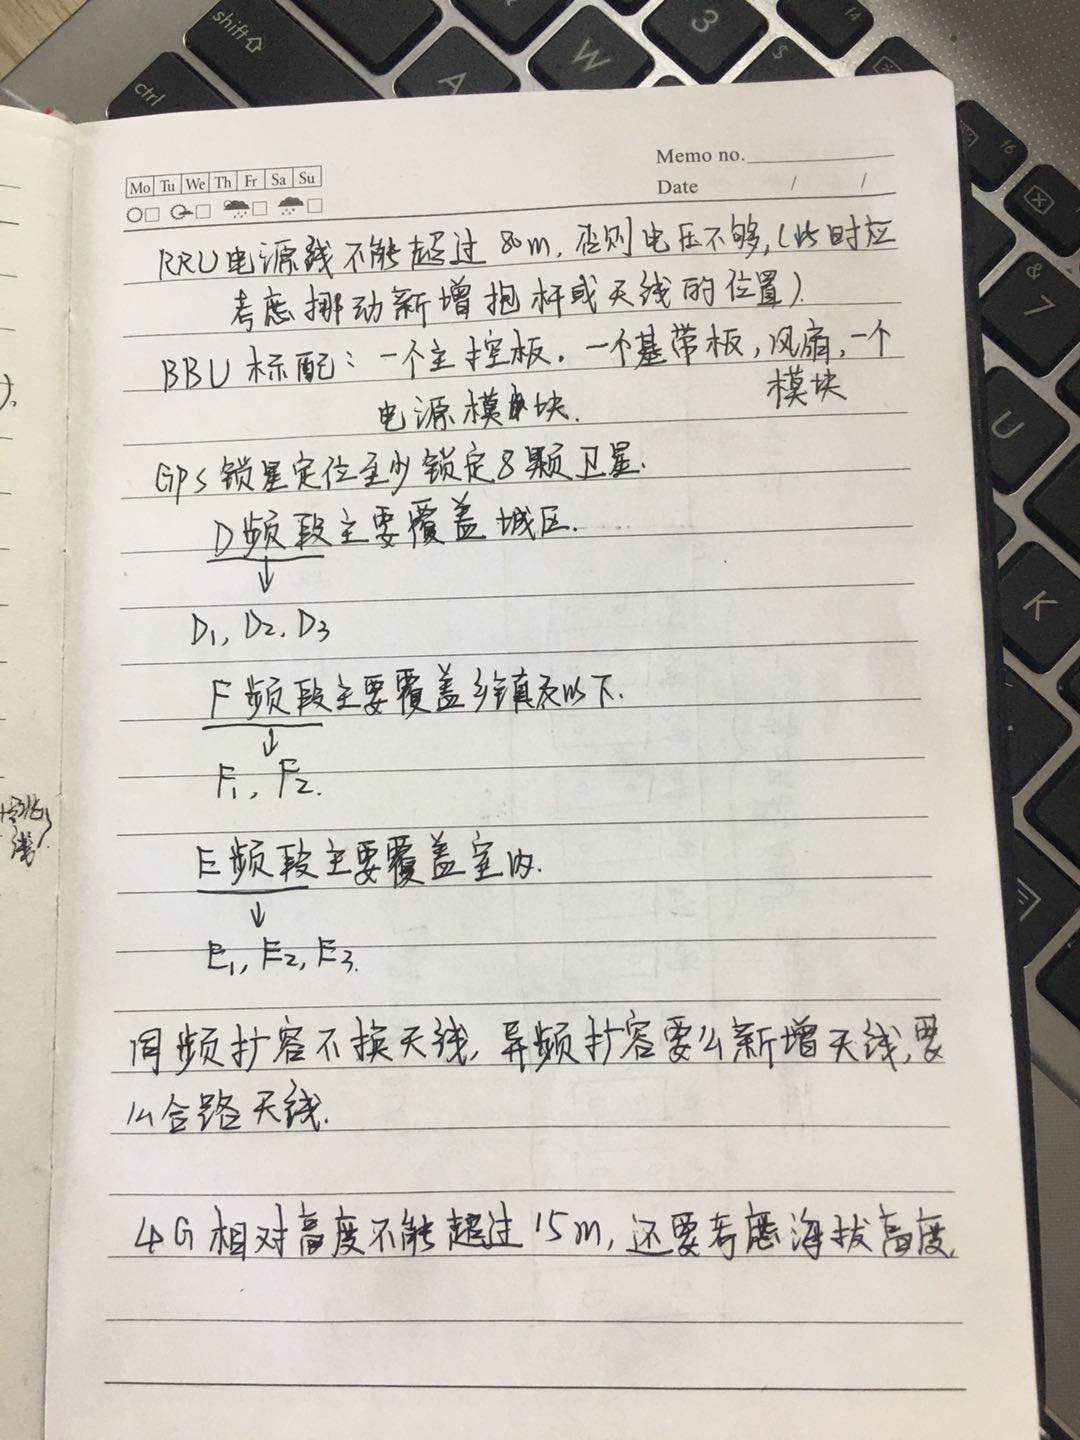 shift
ctrl
A
W
3
$
f4
f6
&
7
U
K
Memo no.
Mo Tu We Th Fr Sa Su
Date / /
RRU电源线不能超过80m,否则电压不够,(此时应
考虑挪动新增抱杆或天线的位置).
BBU标配:一个主控板.一个基带板,风扇,一个
模块
电源模块.
GPS锁星定位至少锁定8颗卫星.
D频段主要覆盖城区.
↓
D1, D2, D3
F频段主要覆盖乡镇及以下.
↓
F1, F2.
E频段主要覆盖室内.
↓
E1, E2, E3.
同频扩容不换天线,异频扩容要么新增天线,要
么合路天线.
4G相对高度不能超过15m,还要考虑海拔高度.